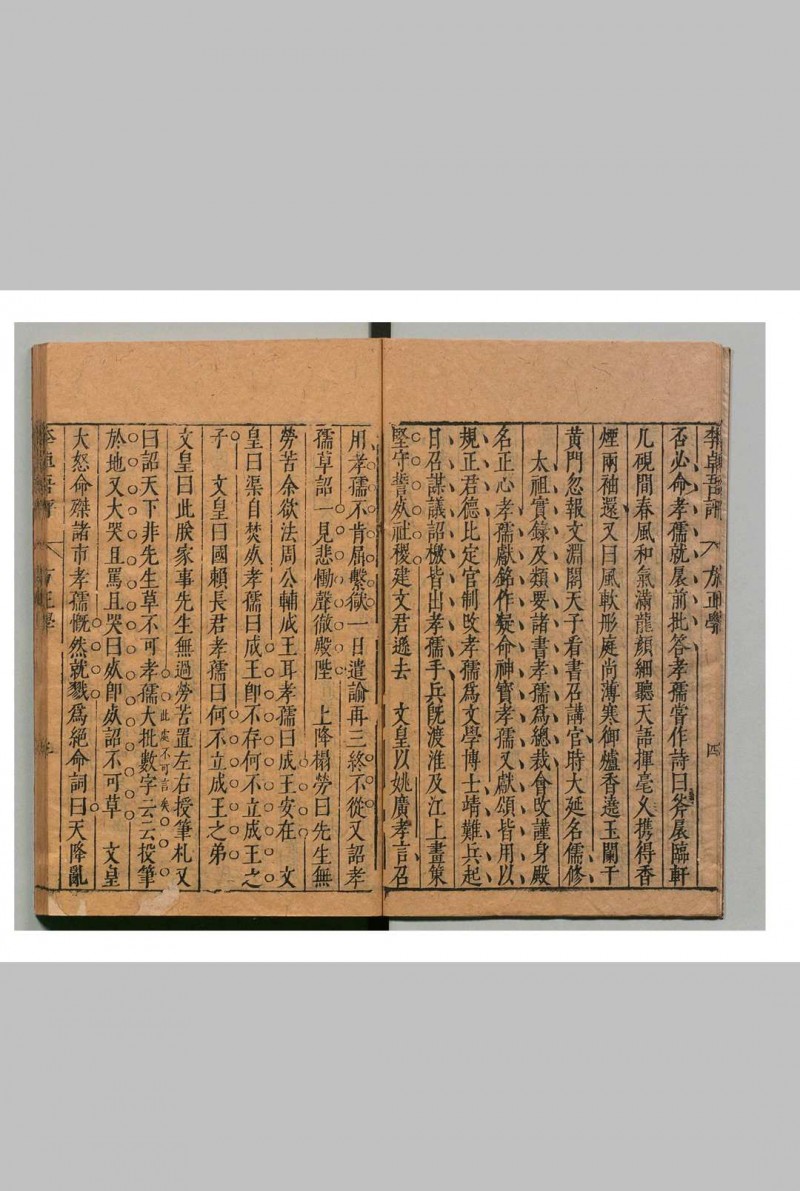 李卓吾評 方正學 四
否必命孝孺就扆前批答孝孺嘗作詩曰斧扆臨軒
几硯間春風和氣滿龍顏細聽天語揮毫久携得香
煙兩袖還又曰風軟彤庭尚薄寒御爐香遶玉闌干
黃門忽報文淵閣天子看書召講官時大延名儒修
太祖實錄及類要諸書孝孺爲總裁會改謹身殿
名正心孝孺獻銘作凝命神寳孝孺又獻頌皆用以
規正君德比定官制改孝孺爲文學博士靖難兵起
日召謀議詔檄皆出孝孺手兵旣渡淮及江上畫策
堅守誓死社稷建文君遜去 文皇以姚廣孝言召
用孝孺不肯屈繫獄一日遣諭再三終不從又詔孝
孺草詔一見悲慟聲徹殿陛 上降榻勞曰先生無
勞苦余欲法周公輔成王耳孝孺曰成王安在 文
皇曰渠自焚死孝孺曰成王卽不存何不立成王之
子 文皇曰國賴長君孝孺曰何不立成王之弟
文皇曰此朕家事先生無過勞苦置左右授筆札又
此處不可言矣
曰詔天下非先生草不可孝孺大批數字云云投筆
於地又大哭且罵且哭曰死卽死詔不可草 文皇
大怒命磔諸市孝孺慨然就戮爲絕命詞曰天降亂
李卓吾評 方正學